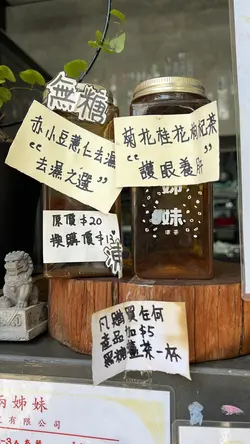 無糖
赤小豆薏仁去濕
“去濕之選”
菊花桂花枸杞茶
“護眼養肝”
原價$20
換購價$13
姊
妹
涼茶
凡購買任何
產品加$5
羅漢薑茶一杯
兩姊妹
有限公司